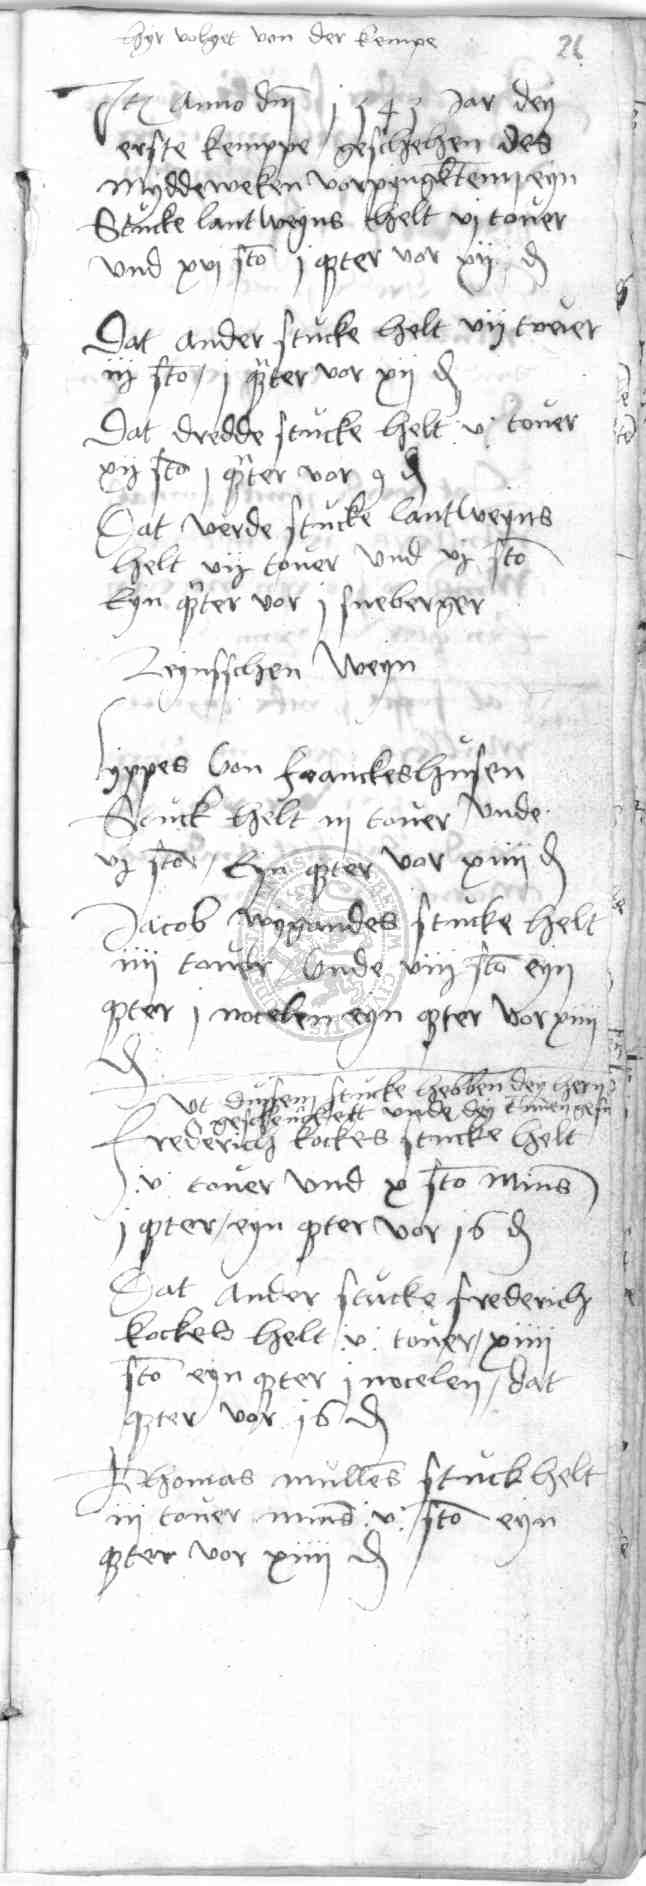 Hyr volget von der kempe
26
Itē Anno dm̄ 1543 Jar dey
erste kemppe geschehen des
myddeweken vor eyn
Stucke lantweyns helt vj tover
vnd xvj sto j qrter vor xij ₰
Dat ander stucke helt vij tover
iij sto / j qrter vor xij ₰
Dat dredde stucke helt v tover
xij sto j qrter vor 9 ₰
Dat verde stucke lantweyns
helt vij tover vnd vj sto
Eyn qrter vor j sneberger
Reynsschen Weyn
Lyppes Von franckeshusen
Stuck helt iij tover Vnde
vj sto / Eyn qrter vor xiiij ₰
Jacob wygandes stucke helt
iiij tover Vnde viij sto eyn
qrter j nocelen eyn qrter Vor xiiij
₰
Vt dussem stucke hebben dey hern
geschenckett vnde dey
Frederich kockes stucke helt
v tover vnd x sto mins
j qrter / eyn qrter vor 16 ₰
Dat ander stucke frederich
kockes helt v tover / xiiij
sto eyn qrter j nocelen / dat
qrter vor 16 ₰
Thomas mullers stuck helt
iij tover mins v sto eyn
qrter vor xiiij ₰